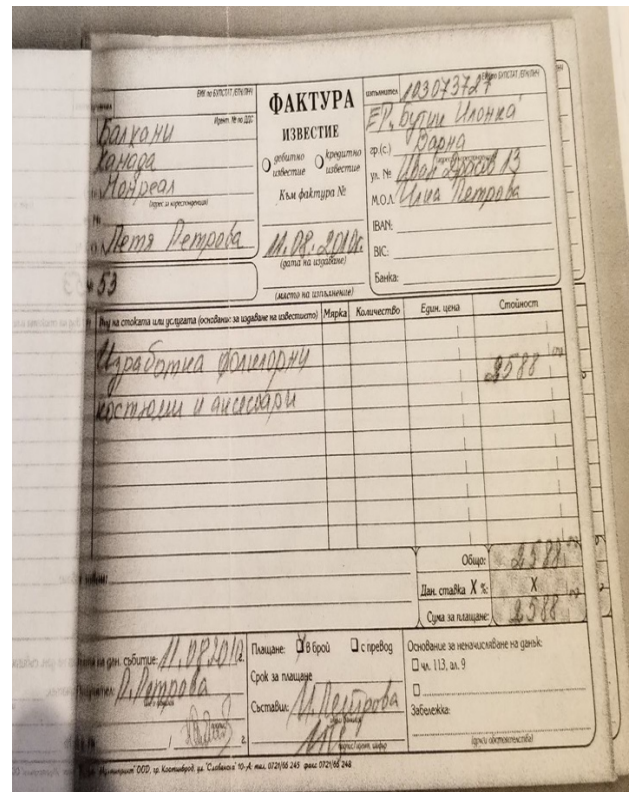 ЕИК по БУЛСТАТ /ЕГН/ЛНЧ
Идент. № по ДДС
Балкани
Канада
Монреал
(адрес за кореспонденция)
Петя Петрова
53
ФАКТУРА
ИЗВЕСТИЕ
дебитно известие
кредитно известие
Към фактура №
11.08.2010г.
(дата на издаване)
(място на изпълнение)
ЕИК по БУЛСТАТ /ЕГН/ЛНЧ
изпълнител 103073727
ЕТ „Бутик Илонка"
гр.(с.) Варна
ул. № Иван Драсов 13
М.О.Л. Петрова
IBAN:
BIC:
Банка:
Вид на стоката или услугата (основание за издаване на известието) Мярка Количество Един. цена Стойност
Изработка фолклорни 2588
костюми и аксесоари
Общо: 2588
Дан. ставка X %: X
Сума за плащане: 2588
на дан. събитие: 11.08.2010г.
Получател: П. Петрова
г.
Плащане: в брой с превод
Срок за плащане
Съставил: И. Петрова
Основание за неначисляване на данък:
чл. 113, ал. 9
Забележка:
(други обстоятелства)
"Мултипринт" ООД, гр. Костинброд, ул. "Славянска" 10-А; тел. 0721/66 245 факс 0721/66 248